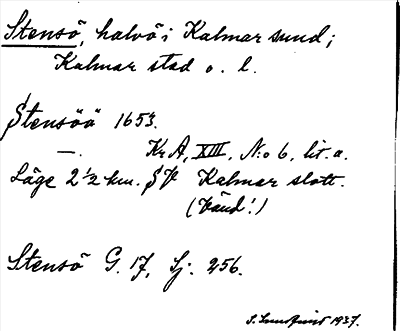 Stensö, halvö i Kalmar sund;
Kalmar stad o. l.
Stensöö 1653.
—. Kr A, XIII, N:o 6, lit. a.
Läge 2 1/2 km. SV Kalmar slott.
(Vänd!)
Stensö G. 17, Sj. 256.
S. 1937.